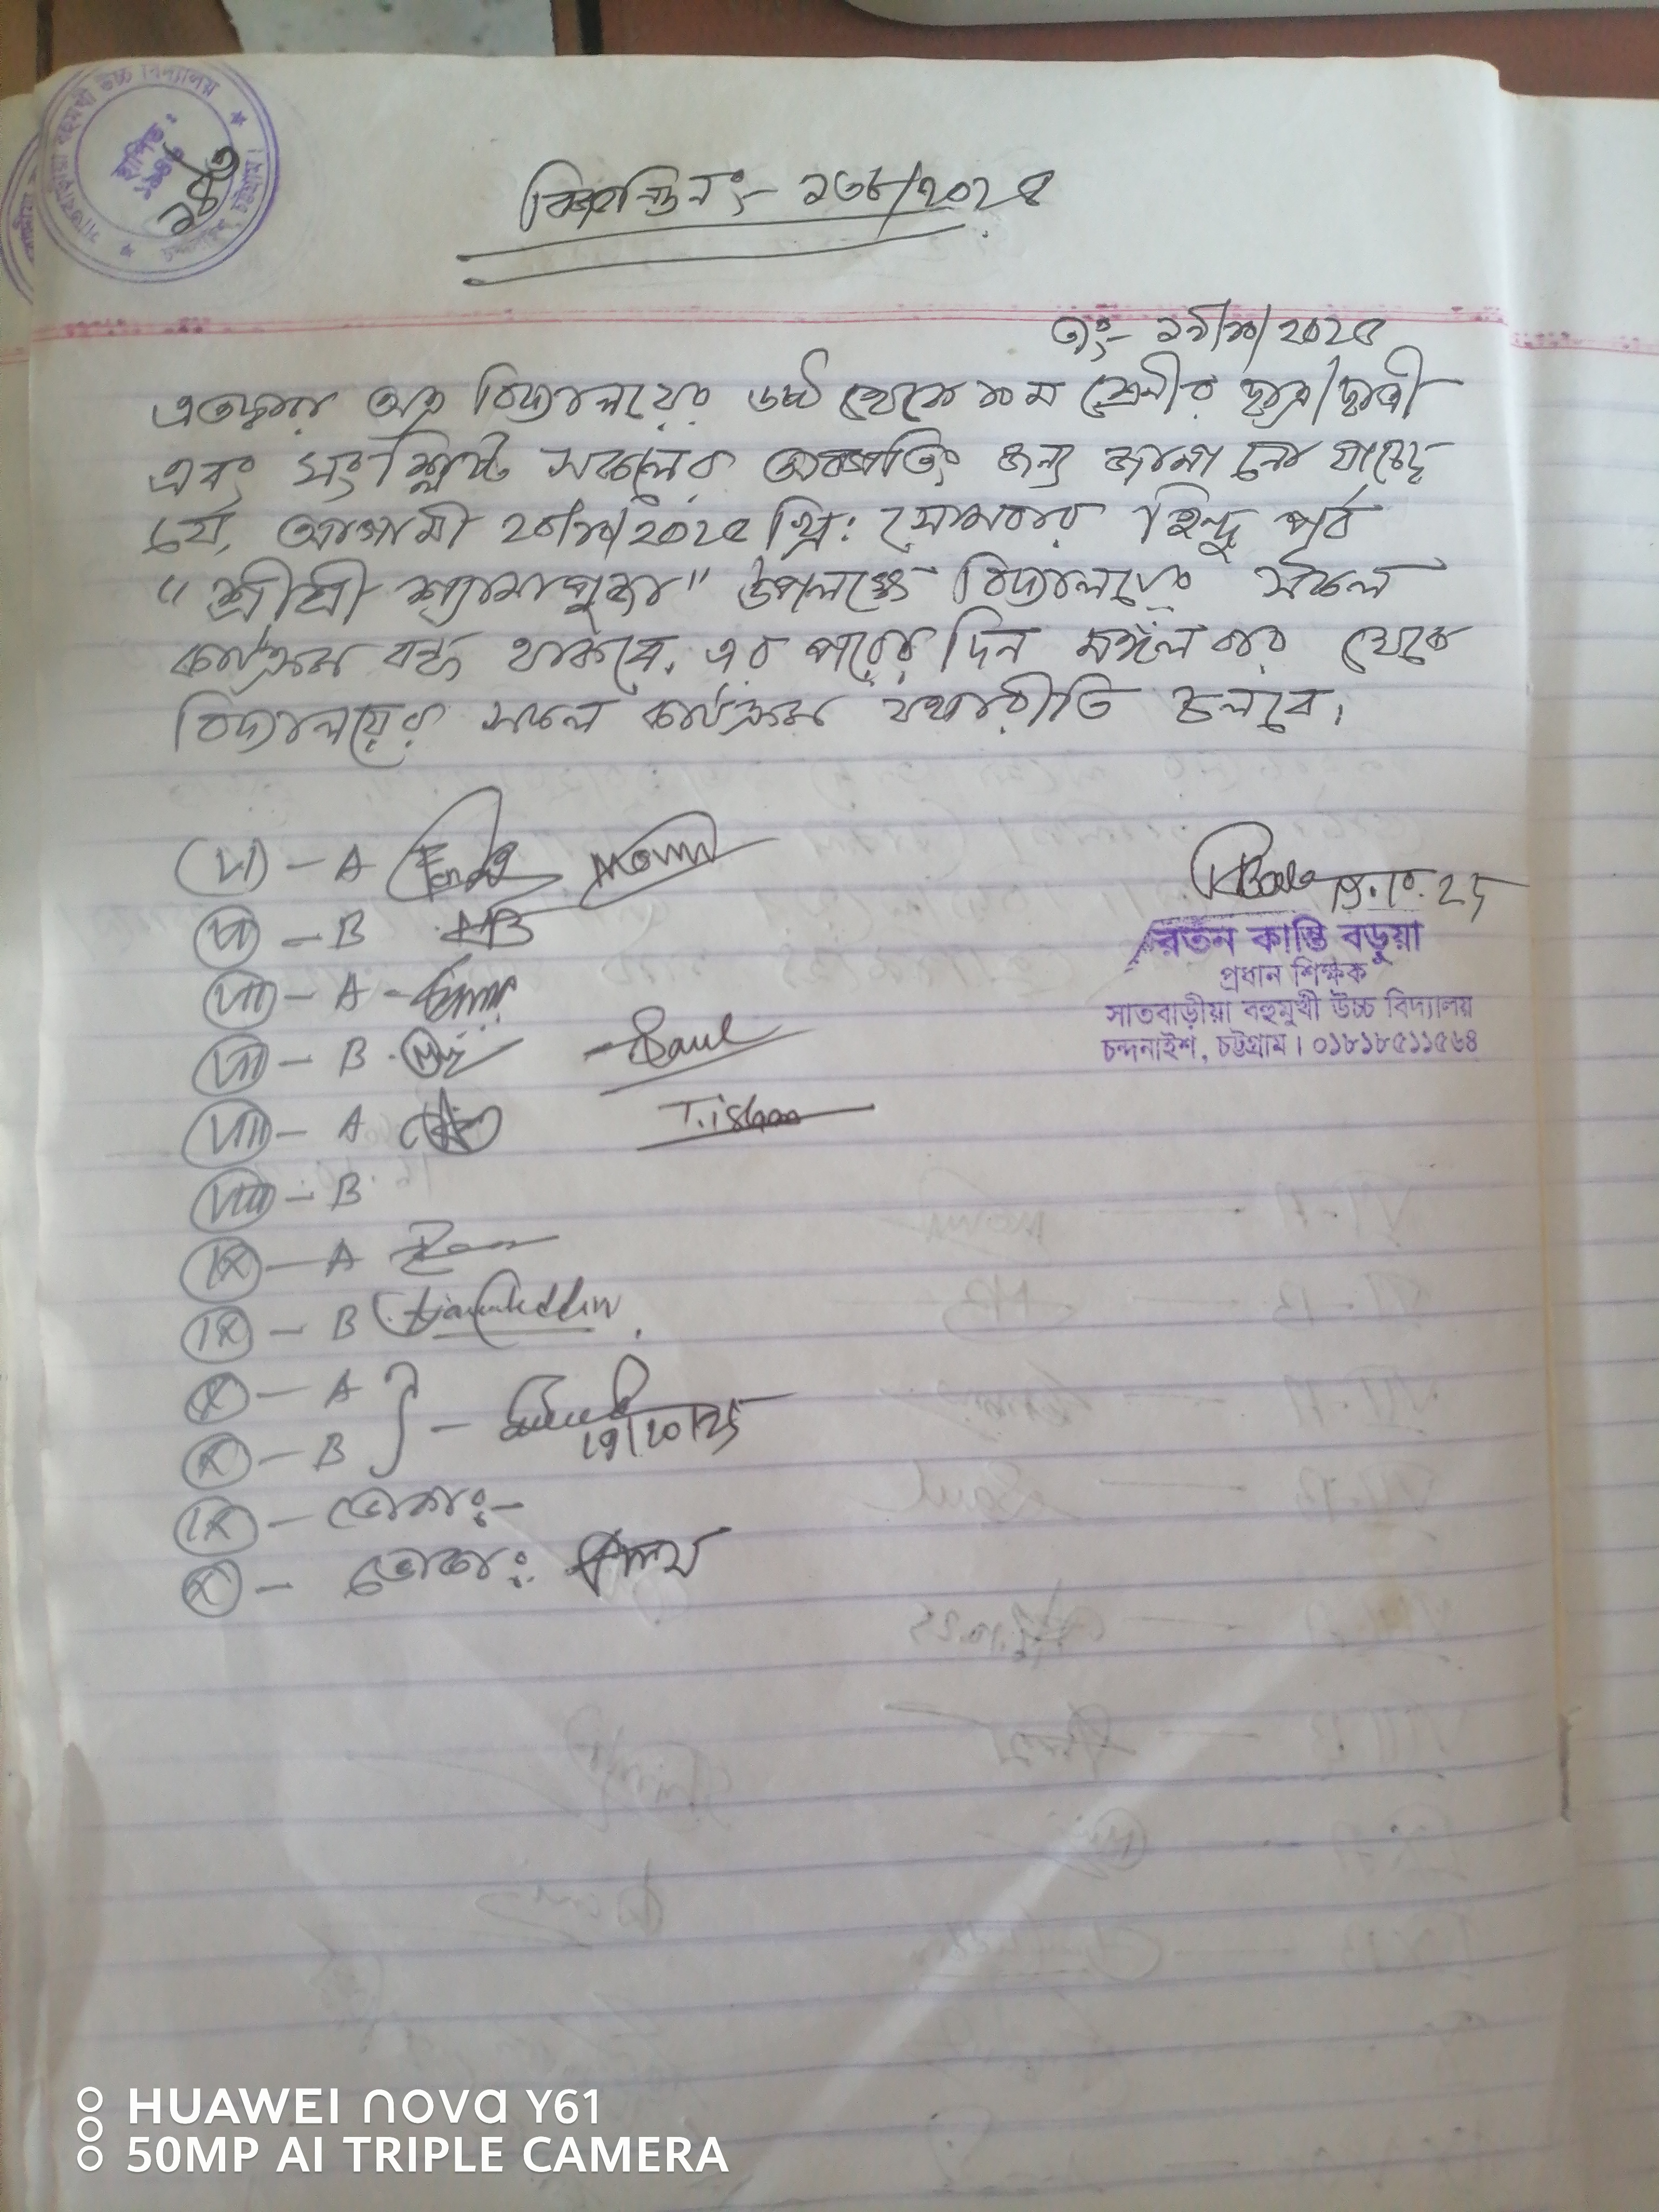 বিজ্ঞপ্তি নং:- ১৩৮/২০২৫
তাং:- ১৯/১০/২০২৫
এতদ্বারা অত্র বিদ্যালয়ের ৬ষ্ঠ থেকে ১০ম শ্রেণীর ছাত্র/ছাত্রী
এবং সংশ্লিষ্ট সকলের অবগতির জন্য জানানো যাচ্ছে
যে, আগামী ২০/১০/২০২৫ খ্রি: সোমবার হিন্দু পর্ব
"শ্রীশ্রী শ্যামাপুজা" উপলক্ষে বিদ্যালয়ের সকল
কার্যক্রম বন্ধ থাকবে, এর পরের দিন মঙ্গলবার থেকে
বিদ্যালয়ের সকল কার্যক্রম যথারীতি চলবে।
(VI) - A
19.10.25
রতন কান্তি বড়ুয়া
প্রধান শিক্ষক
সাতবাড়ীয়া বহুমুখী উচ্চ বিদ্যালয়
চন্দনাইশ, চট্টগ্রাম। ০১৮১৮৫১১৫৬৪
(VI) - B
(VII) - A -
(VII) - B
(VIII) - A
(VIII) - B
(IX) - A
(IX) - B
(X) - A
(X) - B
19/10/25
(IX) - ভোকা:-
(X) - ভোকা:
HUAWEI nova Y61
50MP AI TRIPLE CAMERA